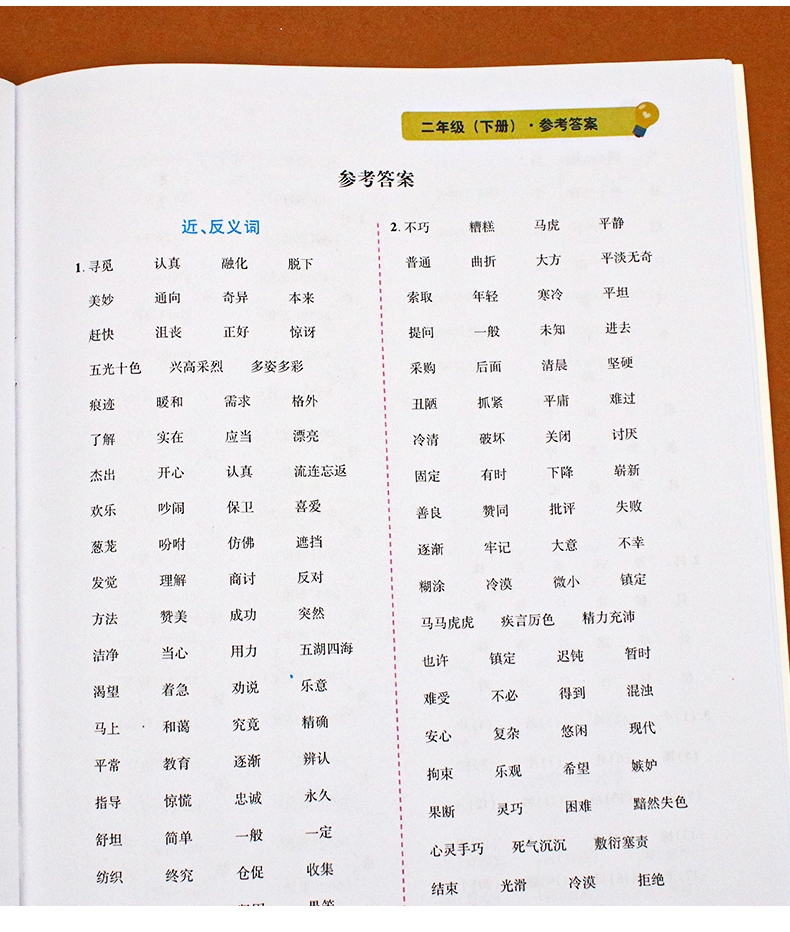 二年级（下册）·参考答案
参考答案
近、反义词
1. 寻觅 认真 融化 脱下
美妙 通向 奇异 本来
赶快 沮丧 正好 惊讶
五光十色 兴高采烈 多姿多彩
痕迹 暖和 需求 格外
了解 实在 应当 漂亮
杰出 开心 认真 流连忘返
欢乐 吵闹 保卫 喜爱
葱茏 吩咐 仿佛 遮挡
发觉 理解 商讨 反对
方法 赞美 成功 突然
洁净 当心 用力 五湖四海
渴望 着急 劝说 乐意
马上 和蔼 究竟 精确
平常 教育 逐渐 辨认
指导 惊慌 忠诚 永久
舒坦 简单 一般 一定
纺织 终究 仓促 收集
2. 不巧 糟糕 马虎 平静
普通 曲折 大方 平淡无奇
索取 年轻 寒冷 平坦
提问 一般 未知 进去
采购 后面 清晨 坚硬
丑陋 抓紧 平庸 难过
冷清 破坏 关闭 讨厌
固定 有时 下降 崭新
善良 赞同 批评 失败
逐渐 牢记 大意 不幸
糊涂 冷漠 微小 镇定
马马虎虎 疾言厉色 精力充沛
也许 镇定 迟钝 暂时
难受 不必 得到 混浊
安心 复杂 悠闲 现代
拘束 乐观 希望 嫉妒
果断 灵巧 困难 黯然失色
心灵手巧 死气沉沉 敷衍塞责
结束 光滑 冷漠 拒绝